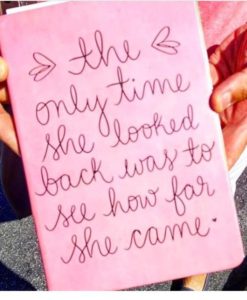 the
only time
she looked
back was to
see how far
she came.